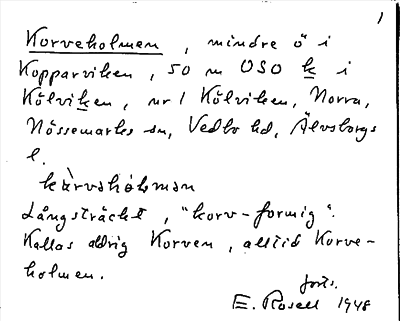 1
Korveholmen, mindre ö i
Kopparviken, 50 m OSO k i
Kölviken, nr 1 Kölviken, Norra,
Nössemarks sn, Vedbo hd, Älvsborgs
l.
kàrvahòlman
Långsträckt, "korv-formig".
Kallas aldrig Korven, alltid Korve-
holmen.
forts.
E. Rosell 1948